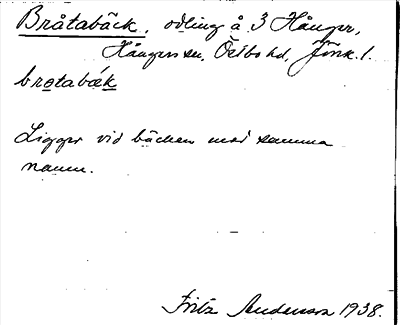 Bråtabäck, odling å 3 Hånger,
Hångers sn, Östbo hd, Jönk. l.
bro̲tabæ̲k
Ligger vid bäcken med samma
namn.
Fritz Anderson 1938.